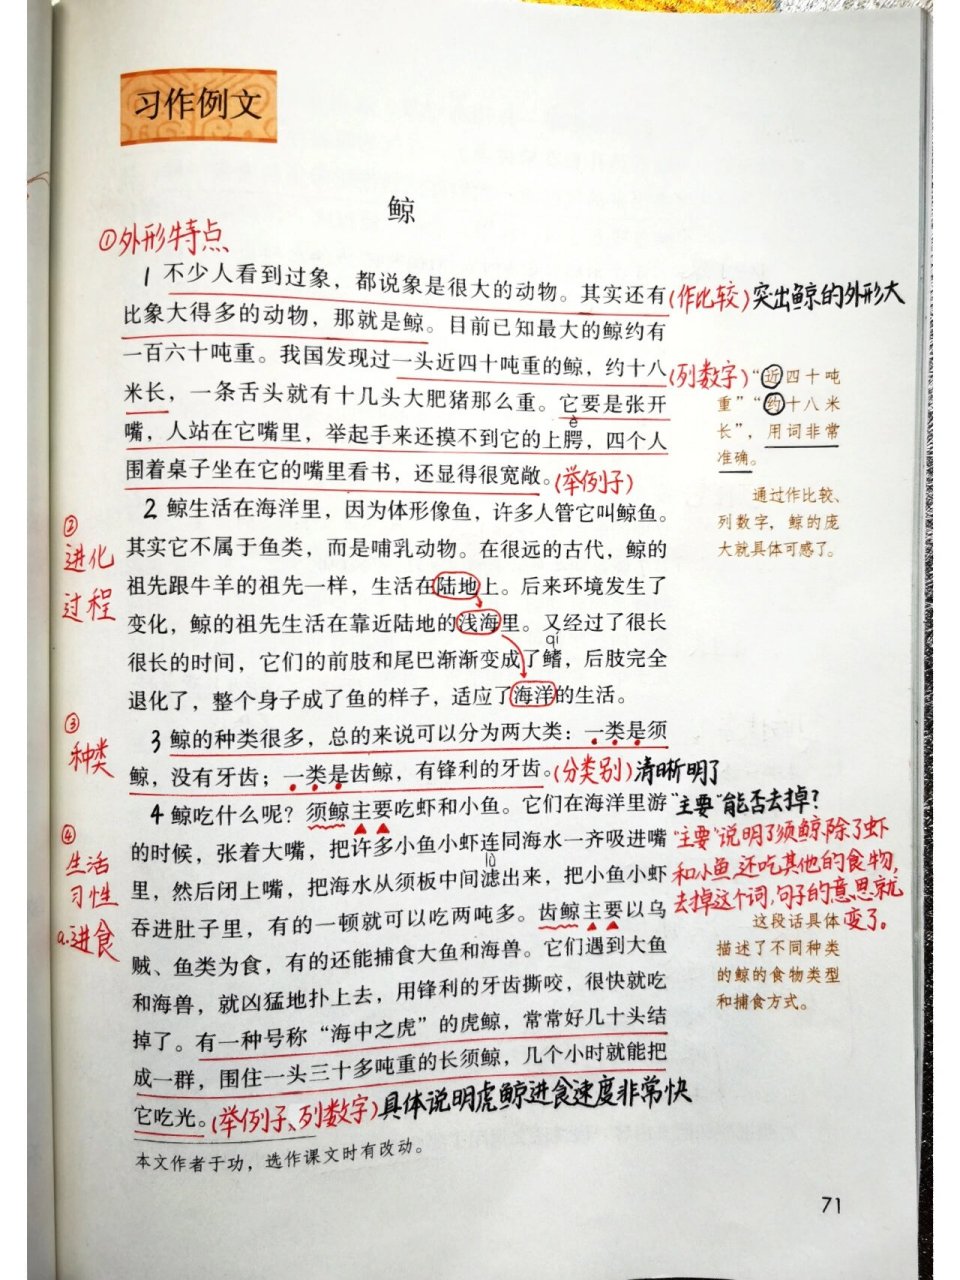 习作例文
鲸
①外形特点
1 不少人看到过象，都说象是很大的动物。其实还有(作比较)突出鲸的外形大
比象大得多的动物，那就是鲸。目前已知最大的鲸约有
一百六十吨重。我国发现过一头近四十吨重的鲸，约十八(列数字)
米长，一条舌头就有十几头大肥猪那么重。它要是张开
è
嘴，人站在它嘴里，举起手来还摸不到它的上腭，四个人
围着桌子坐在它的嘴里看书，还显得很宽敞。(举例子)
“近四十吨
重”“约十八米
长”，用词非常
准确。
通过作比较、
列数字，鲸的庞
大就具体可感了。
②
进化
过程
2 鲸生活在海洋里，因为体形像鱼，许多人管它叫鲸鱼。
其实它不属于鱼类，而是哺乳动物。在很远的古代，鲸的
祖先跟牛羊的祖先一样，生活在陆地上。后来环境发生了
变化，鲸的祖先生活在靠近陆地的浅海里。又经过了很长
qí
很长的时间，它们的前肢和尾巴渐渐变成了鳍，后肢完全
退化了，整个身子成了鱼的样子，适应了海洋的生活。
③
种类
3 鲸的种类很多，总的来说可以分为两大类：一类是须
鲸，没有牙齿；一类是齿鲸，有锋利的牙齿。(分类别)清晰明了
④
生活
习性
a.进食
4 鲸吃什么呢？须鲸主要吃虾和小鱼。它们在海洋里游
的时候，张着大嘴，把许多小鱼小虾连同海水一齐吸进嘴
lǜ
里，然后闭上嘴，把海水从须板中间滤出来，把小鱼小虾
吞进肚子里，有的一顿就可以吃两吨多。齿鲸主要以乌
贼、鱼类为食，有的还能捕食大鱼和海兽。它们遇到大鱼
和海兽，就凶猛地扑上去，用锋利的牙齿撕咬，很快就吃
掉了。有一种号称“海中之虎”的虎鲸，常常好几十头结
成一群，围住一头三十多吨重的长须鲸，几个小时就能把
它吃光。(举例子、列数字)具体说明虎鲸进食速度非常快
“主要”能否去掉？
“主要”说明了须鲸除了虾
和小鱼，还吃其他的食物，
去掉这个词，句子的意思就
变了。
这段话具体
描述了不同种类
的鲸的食物类型
和捕食方式。
本文作者于功，选作课文时有改动。
71